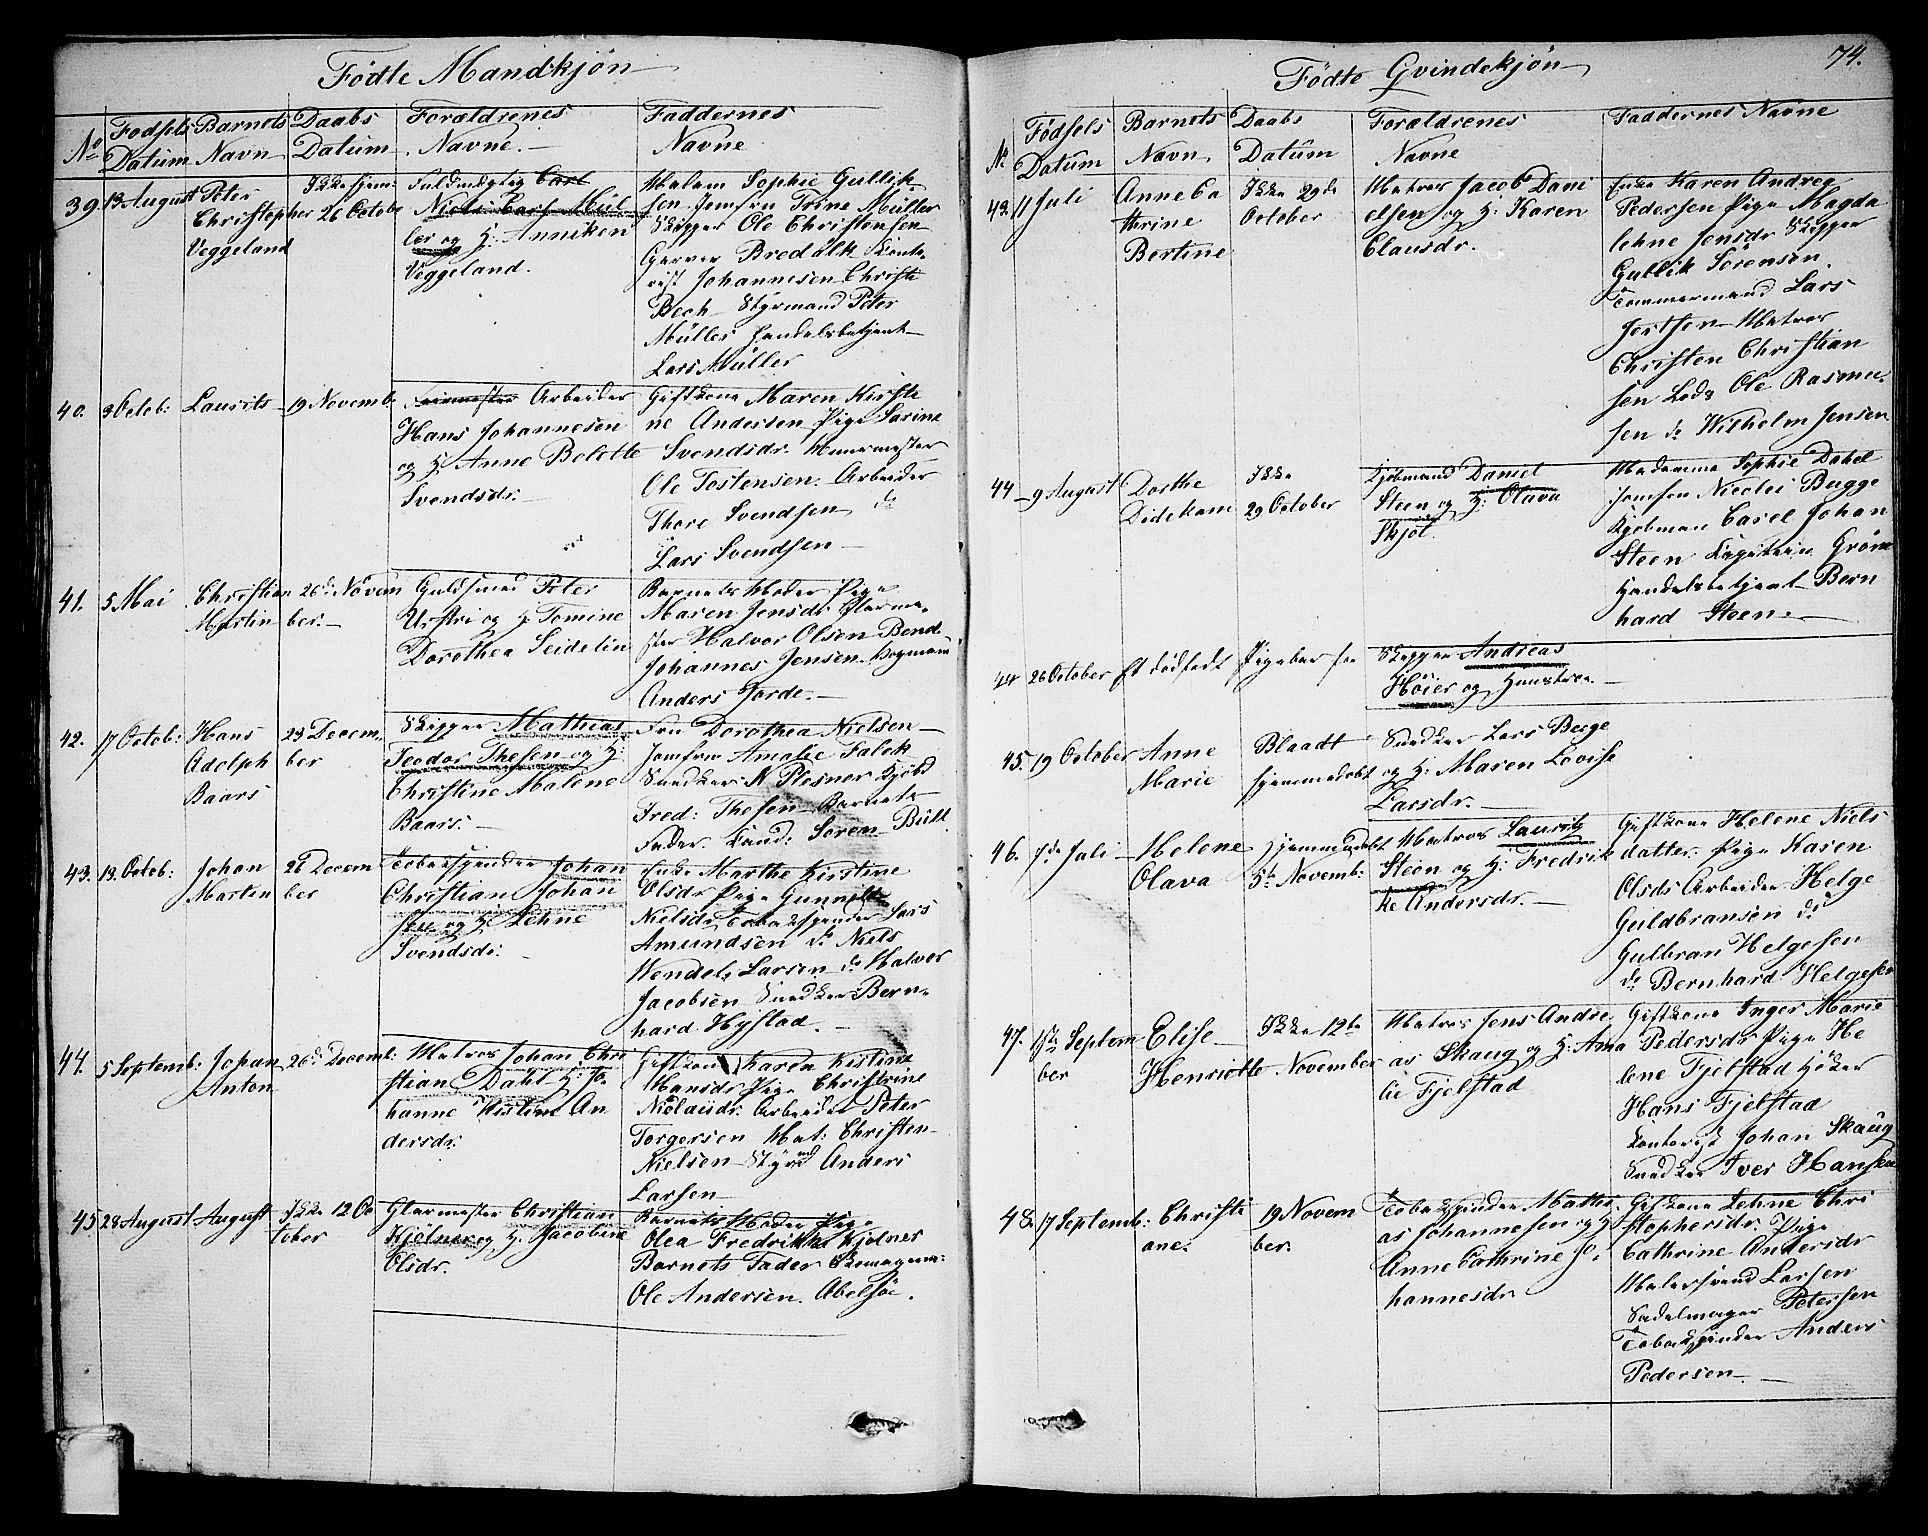 Födte Mandkjön
No
Fodsels
Datum
Barnets
Navn
Daabs
Datum
Forældrenes
Navne.
Faddernes
Navne
39.
13 August
Peter
Christopher
Veggeland
Ikke hjem:
26 Octobr
Fuldmægtig Carl
Niels Carl Mül
ler og H: Anniken
Veggeland.
Madam Sophie Gullik
sen. Jomfru Trine Müller
Skipper Ole Christensen
Garver Bredalk Konto
rist Johannesen Christi
Bech Styrmand Peter
Müller Handelsbetjent
Lars Müller
40.
3 Octob:
Laurits
19 Novemb
Feiemester Arbeider
Hans Johannesen
og H: Anne Belette
Svendsdr:
Giftkone Maren Kirsti
ne Andersen Pige Sarine
Svendsdr. Muurmester
Ole Tostensen. Arbeider
Thore Svendsen do
Lars Svendsen
41.
5 Mai
Christian
Martin
26de Novem
ber.
Guldsmed Peter
og H: Tomine
Dorothea Seidelin
Barnets Moder Pige
Maren Jensdr. Glarme
ster Halvor Olsen Bend.
Johannes Jensen
Anders Jorde.
42.
17 Octob:
Hans
Adolph
Baars
23 Decem
ber
Skipper Mathias
Teodor Thesen og H:
Christine Malene
Baars.
Fru Dorothea Nielsen
Jomfru Amalie Falck
Snedker N Plesner Kjöbd
Fred: Thesen Barnets
Fader. Kand: Soren Bull
43.
13. Octob:
Johan
Martin
26 Decem
ber
Tobacspinder Johan
Christian Johan
sen og H: Lehne
Svendsdr.
Enke Marthe Kirstine
Olsdr Pige Gunnild
Nielsdr Tobakspinder Lars
Amundsen do Niels
Wendel Larsen do Halvor
Jacobsen Snedker Bern
hard Hystad.
44.
5 Septemb:
Johan
Anton
26de Decemb:
Matros Johan Chri
stian Dahl H: Jo
hanne Kistine An
dersdr:
Giftkone Karen Kistine
Hansdr Pige Christine
Nielausdr. Arbeider Peter
Torgersen Mat: Christen
Nielsen Styrmd Anders
Larsen
45
28 August
August
Ikke 12 Oc
tober
Glarmester Christian
Kjölner og H. Jacobine
Olsdr.
Barnets Moder Pige
Olea Fredrikke Kjolner
Barnets Fader Skomagerm:
Ole Andersen. Abelsöe.
74.
Födte Qvindekjön
No
Födsels
Datum
Barnets
Navn
Daabs
Datum
Forældrenes
Navne
Faddernes Navne
43.
11 Juli
Anne Ca
thrine
Bertine
Ikke 29de
October
Matros Jacob Dani
elsen og H: Karen
Clausdr.
Enke Karen Andrea
Pedersen Pige Magda
lehne Jensdr Skipper
Gullik Sorensen.
Tommermand Lars
Jortsen Matros
Christen Christian
sen Lods Ole Rasmu
sen do Wilhelm Jensen
44
9 August
Dorthe
Didekam
Ikke
29 October
Kjöbmand Daniel
Steen og H: Olava
Skjöt.
Madamme Sophie Dahl
Jomfru Nicolei Bugge
Kjobman Carel Johan
Steen Kapitein Gröne
Handelsbetjent Bern
hard Steen.
44
26 October
Et dödfödt
Pigebarn
Skipper Andreas
Höier og Hustroe.
45.
19 October
Anne
Marie
Blaadt
hjemmedöbt
Snedker Lars Berge
og H: Maren Lovise
Larsdr.
46.
7de Juli
Helene
Olava
hjemmedöbt
5te Novemb:
Matros Lauritz
Steen og H: Fredrik
ke Andersdr.
Giftkone Helene Niels
datter. Pige Karen
Olsdr Arbeider Helge
Guldbransen do
Gulbran Helgesen
do Bernhard Helgesen
47.
1ste Septem
ber
Elise
Henriette
Ikke 12te
November
Matros Jens Andre
as Skaug og H: Ama
lie Fjelstad
Giftkone Inger Marie
Pedersdr Pige He
lene Fjelstad Höker
Hans Fjelstad
Kontorist Johan Skaug
Snedker Iver Hansen
48.
17 Septemb:
Christi
ane.
19 Novem
ber.
Tobakspinder Mathi
as Johannesen og H
Anne Cathrine Jo
hannesdr
Giftkone Lehne Chri
stophersdr. Pige
Cathrine Andersdr
Malersvend Larsen
Sadelmager Petersen
Tobakspinder Anders
Pedersen.